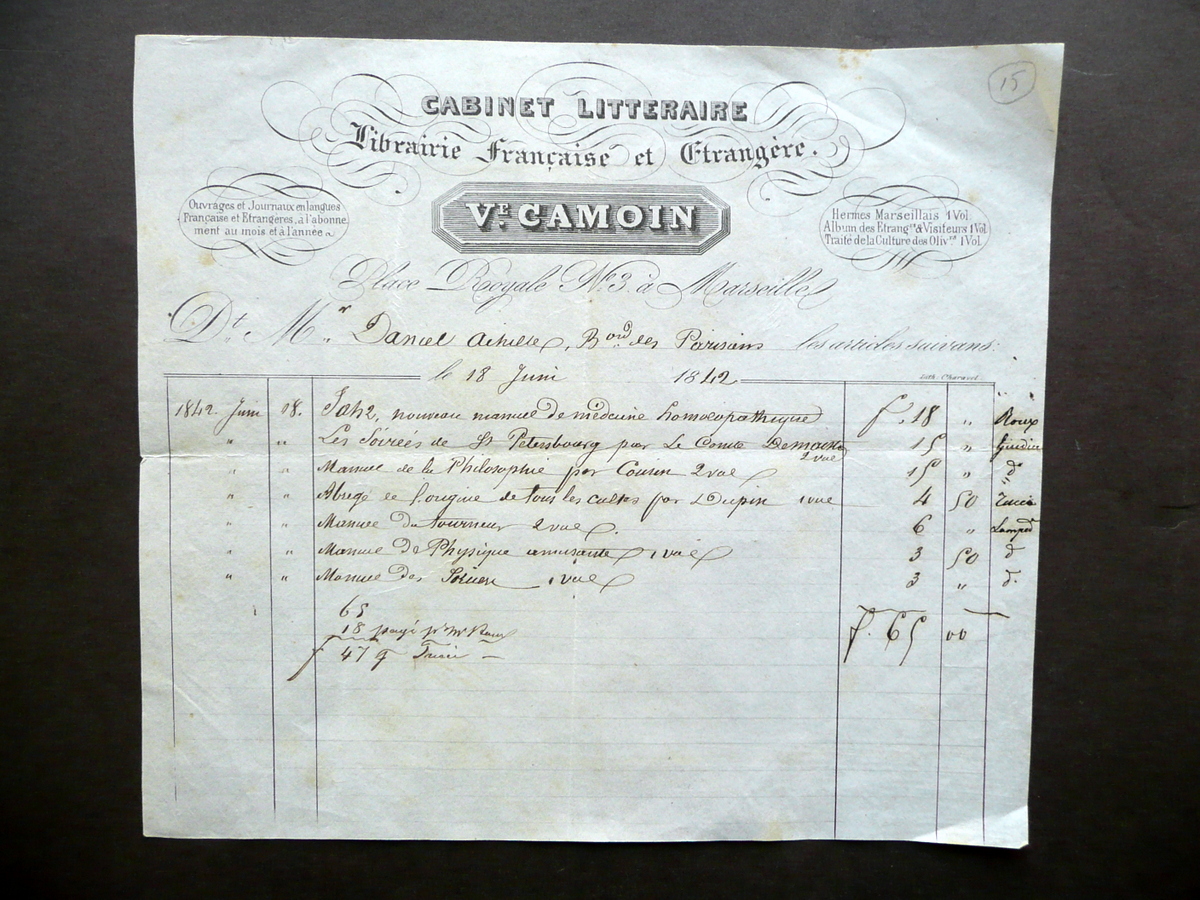 15
CABINET LITTERAIRE
Librairie Française et Etrangère.
Ouvrages et Journaux en langues
Française et Etrangeres, à l'abonne
ment au mois et à l'année
VE. CAMOIN
Hermes Marseillais 1 Vol.
Album des Etrangrs & Visiteurs 1 Vol
Traité de la Culture des Olivrs 1 Vol.
Place Royale No 3. à Marseille
Dt. Mr Daniel Achille, Bord des Parisiens les articles suivans:
le 18 Juin 1842
Lith. Charavel.
1842. Juin 18. Jahr, nouveau manuel de médecine homoeopathique f. 18 " Roux
" " Les Soirées de St Petersbourg par Le Comte Demaistre 2 vol 15 "
" " Manuel de la Philosophie par Cousin 2 vol 15 " do
" " Abregé de l'origine de tous les cultes par Dupin 1 vol 4 50
" " Manuel du tourneur 2 vol 6 "
" " Manuel de Physique amusante 1 vol 3 50 do
" " Manuel des Sorciers 1 vol 3 " do
65 f. 65 00
18 payé pr Mr Roux
f 47